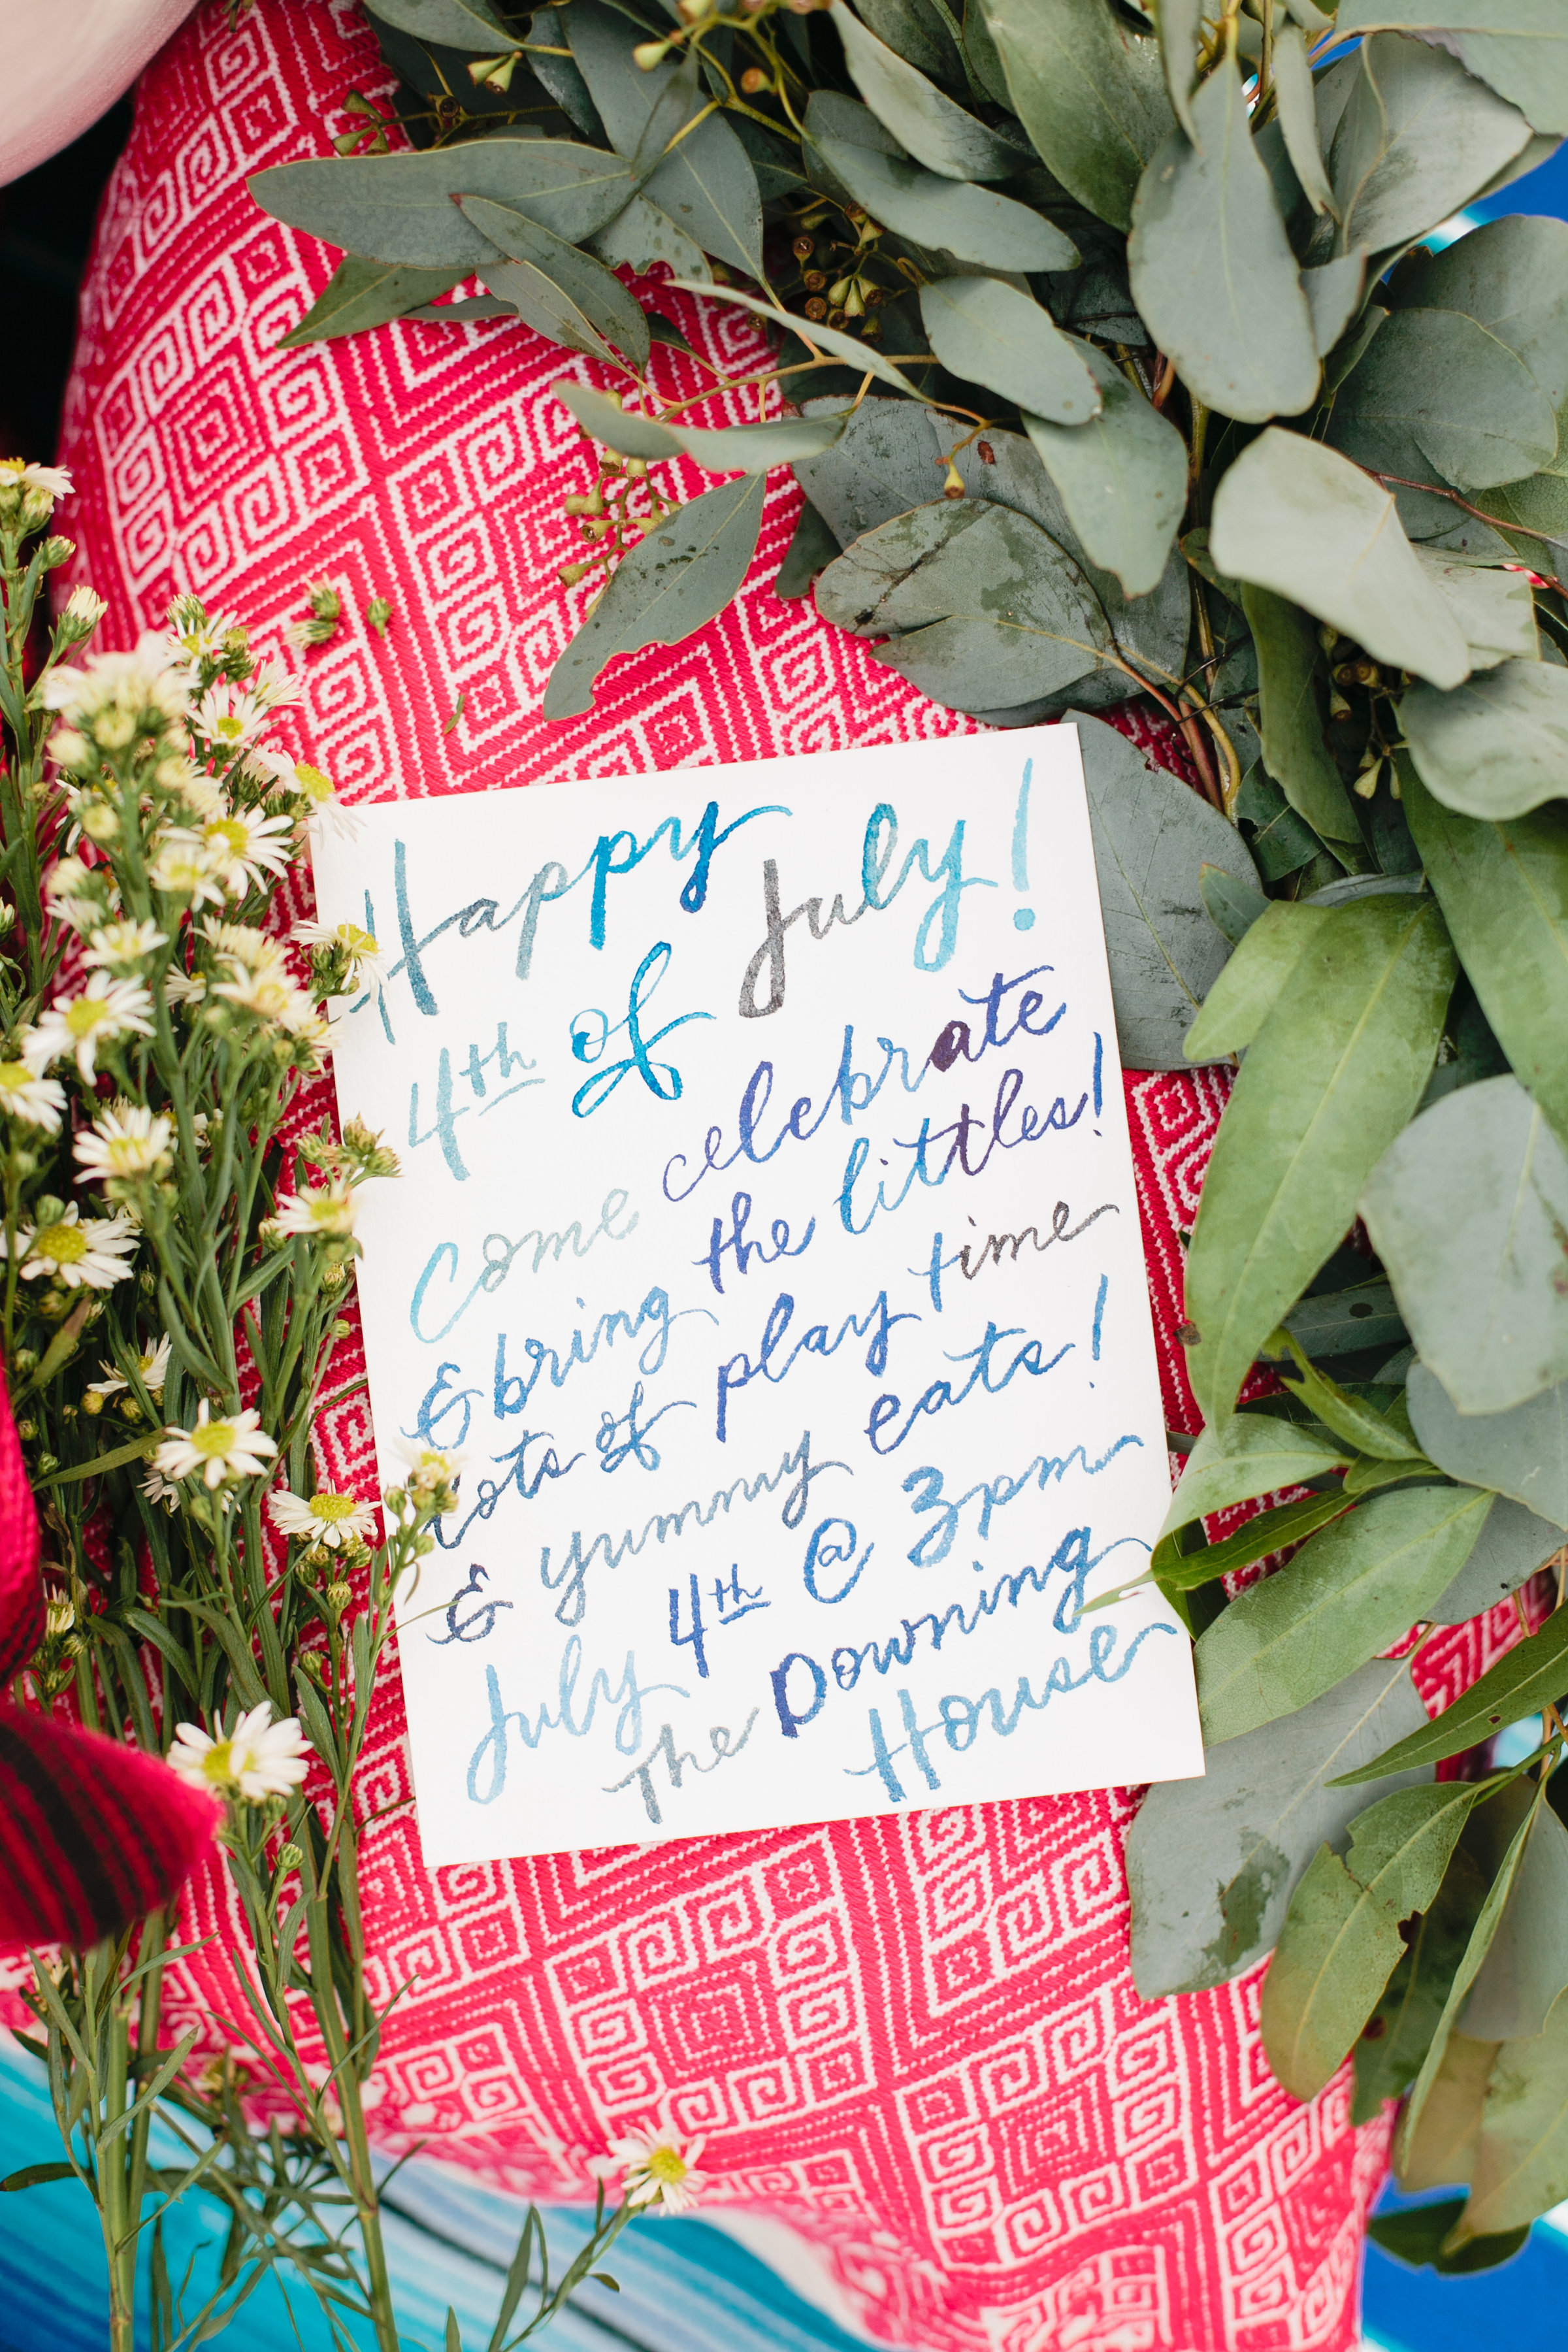 Happy
4th of July!
Come celebrate
& bring the littles!
Lots of play time
& yummy eats!
July 4th @ 3pm
The Downing
House